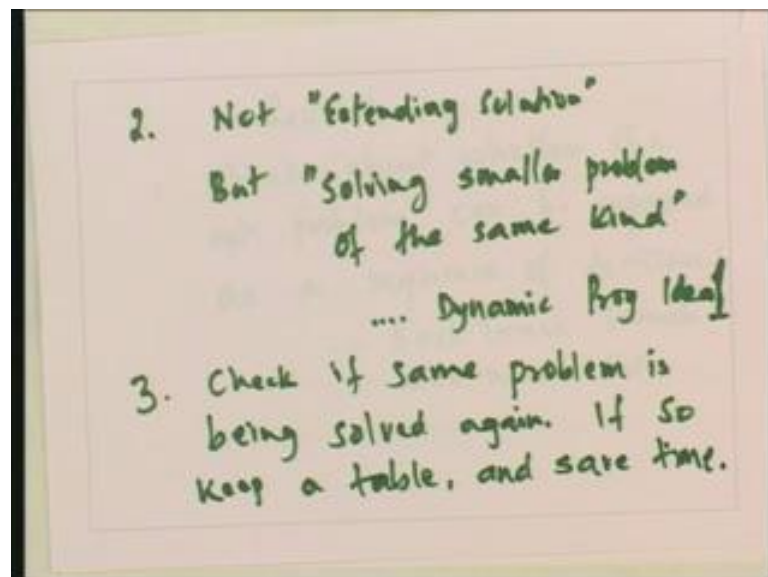 2. Not "Extending Solution"
But "Solving smaller problem
of the same kind"
.... Dynamic Prog Idea]
3. Check if same problem is
being solved again. If so
keep a table, and save time.